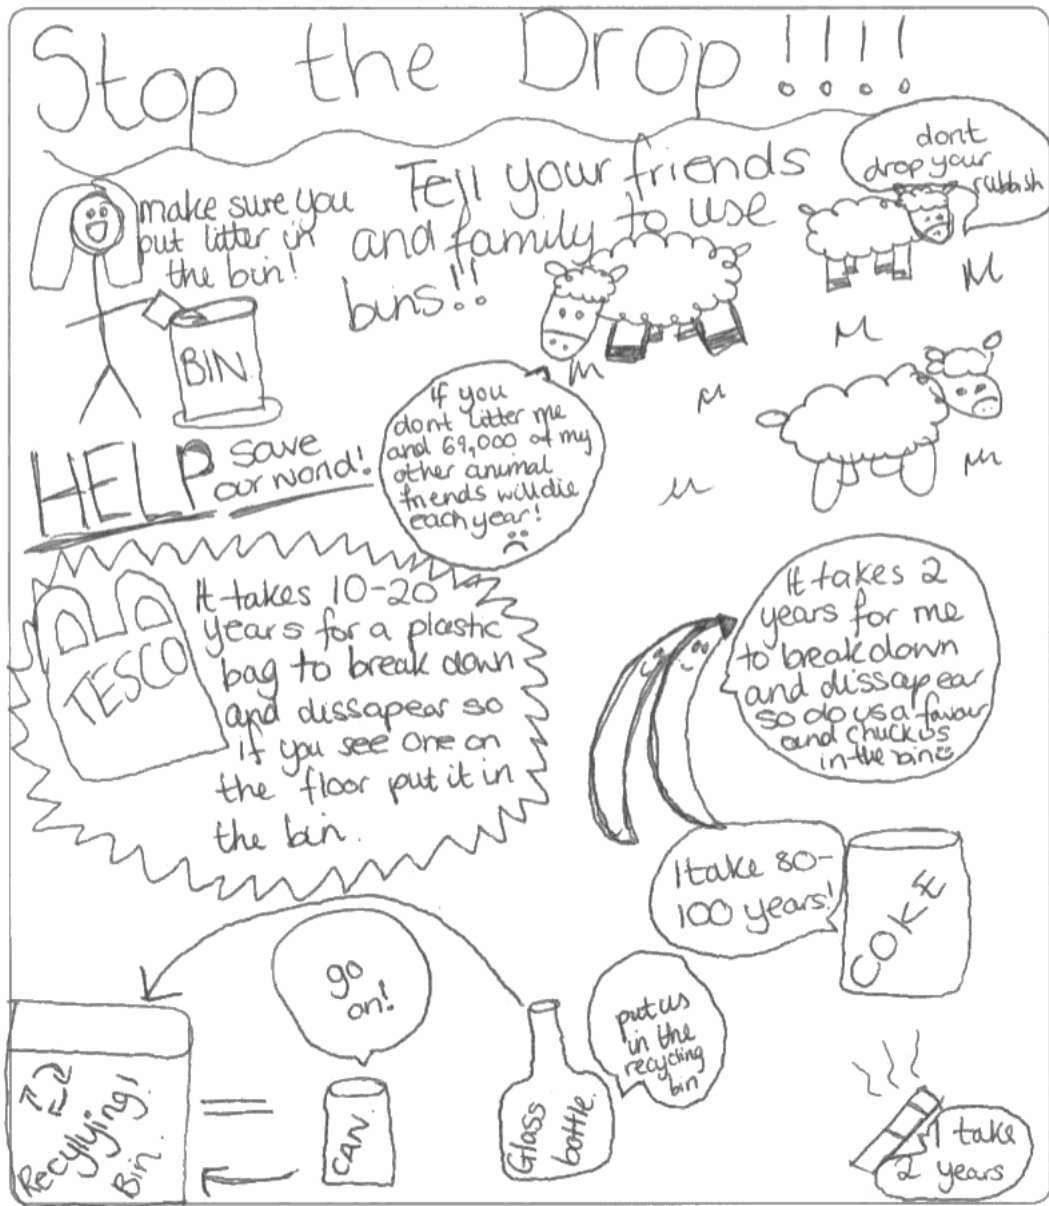 Stop the Drop !!!!
dont
drop your
rubbish
make sure you
put litter in
the bin!
Tell your friends
and family to use
bins!!
BIN
HELP save
our world!
If you
dont litter me
and 69,000 of my
other animal
friends will die
each year!
It takes 10-20
years for a plastic
bag to break down
and dissapear so
if you see one on
the floor put it in
the bin.
TESCO
It takes 2
years for me
to breakdown
and dissapear
so do us a favour
and chuck us
in the bin
I take 80-
100 years!
COKE
go
on!
put us
in the
recycling
bin
Recyllying!
Bin.
CAN.
Glass
bottle.
I take
2 years